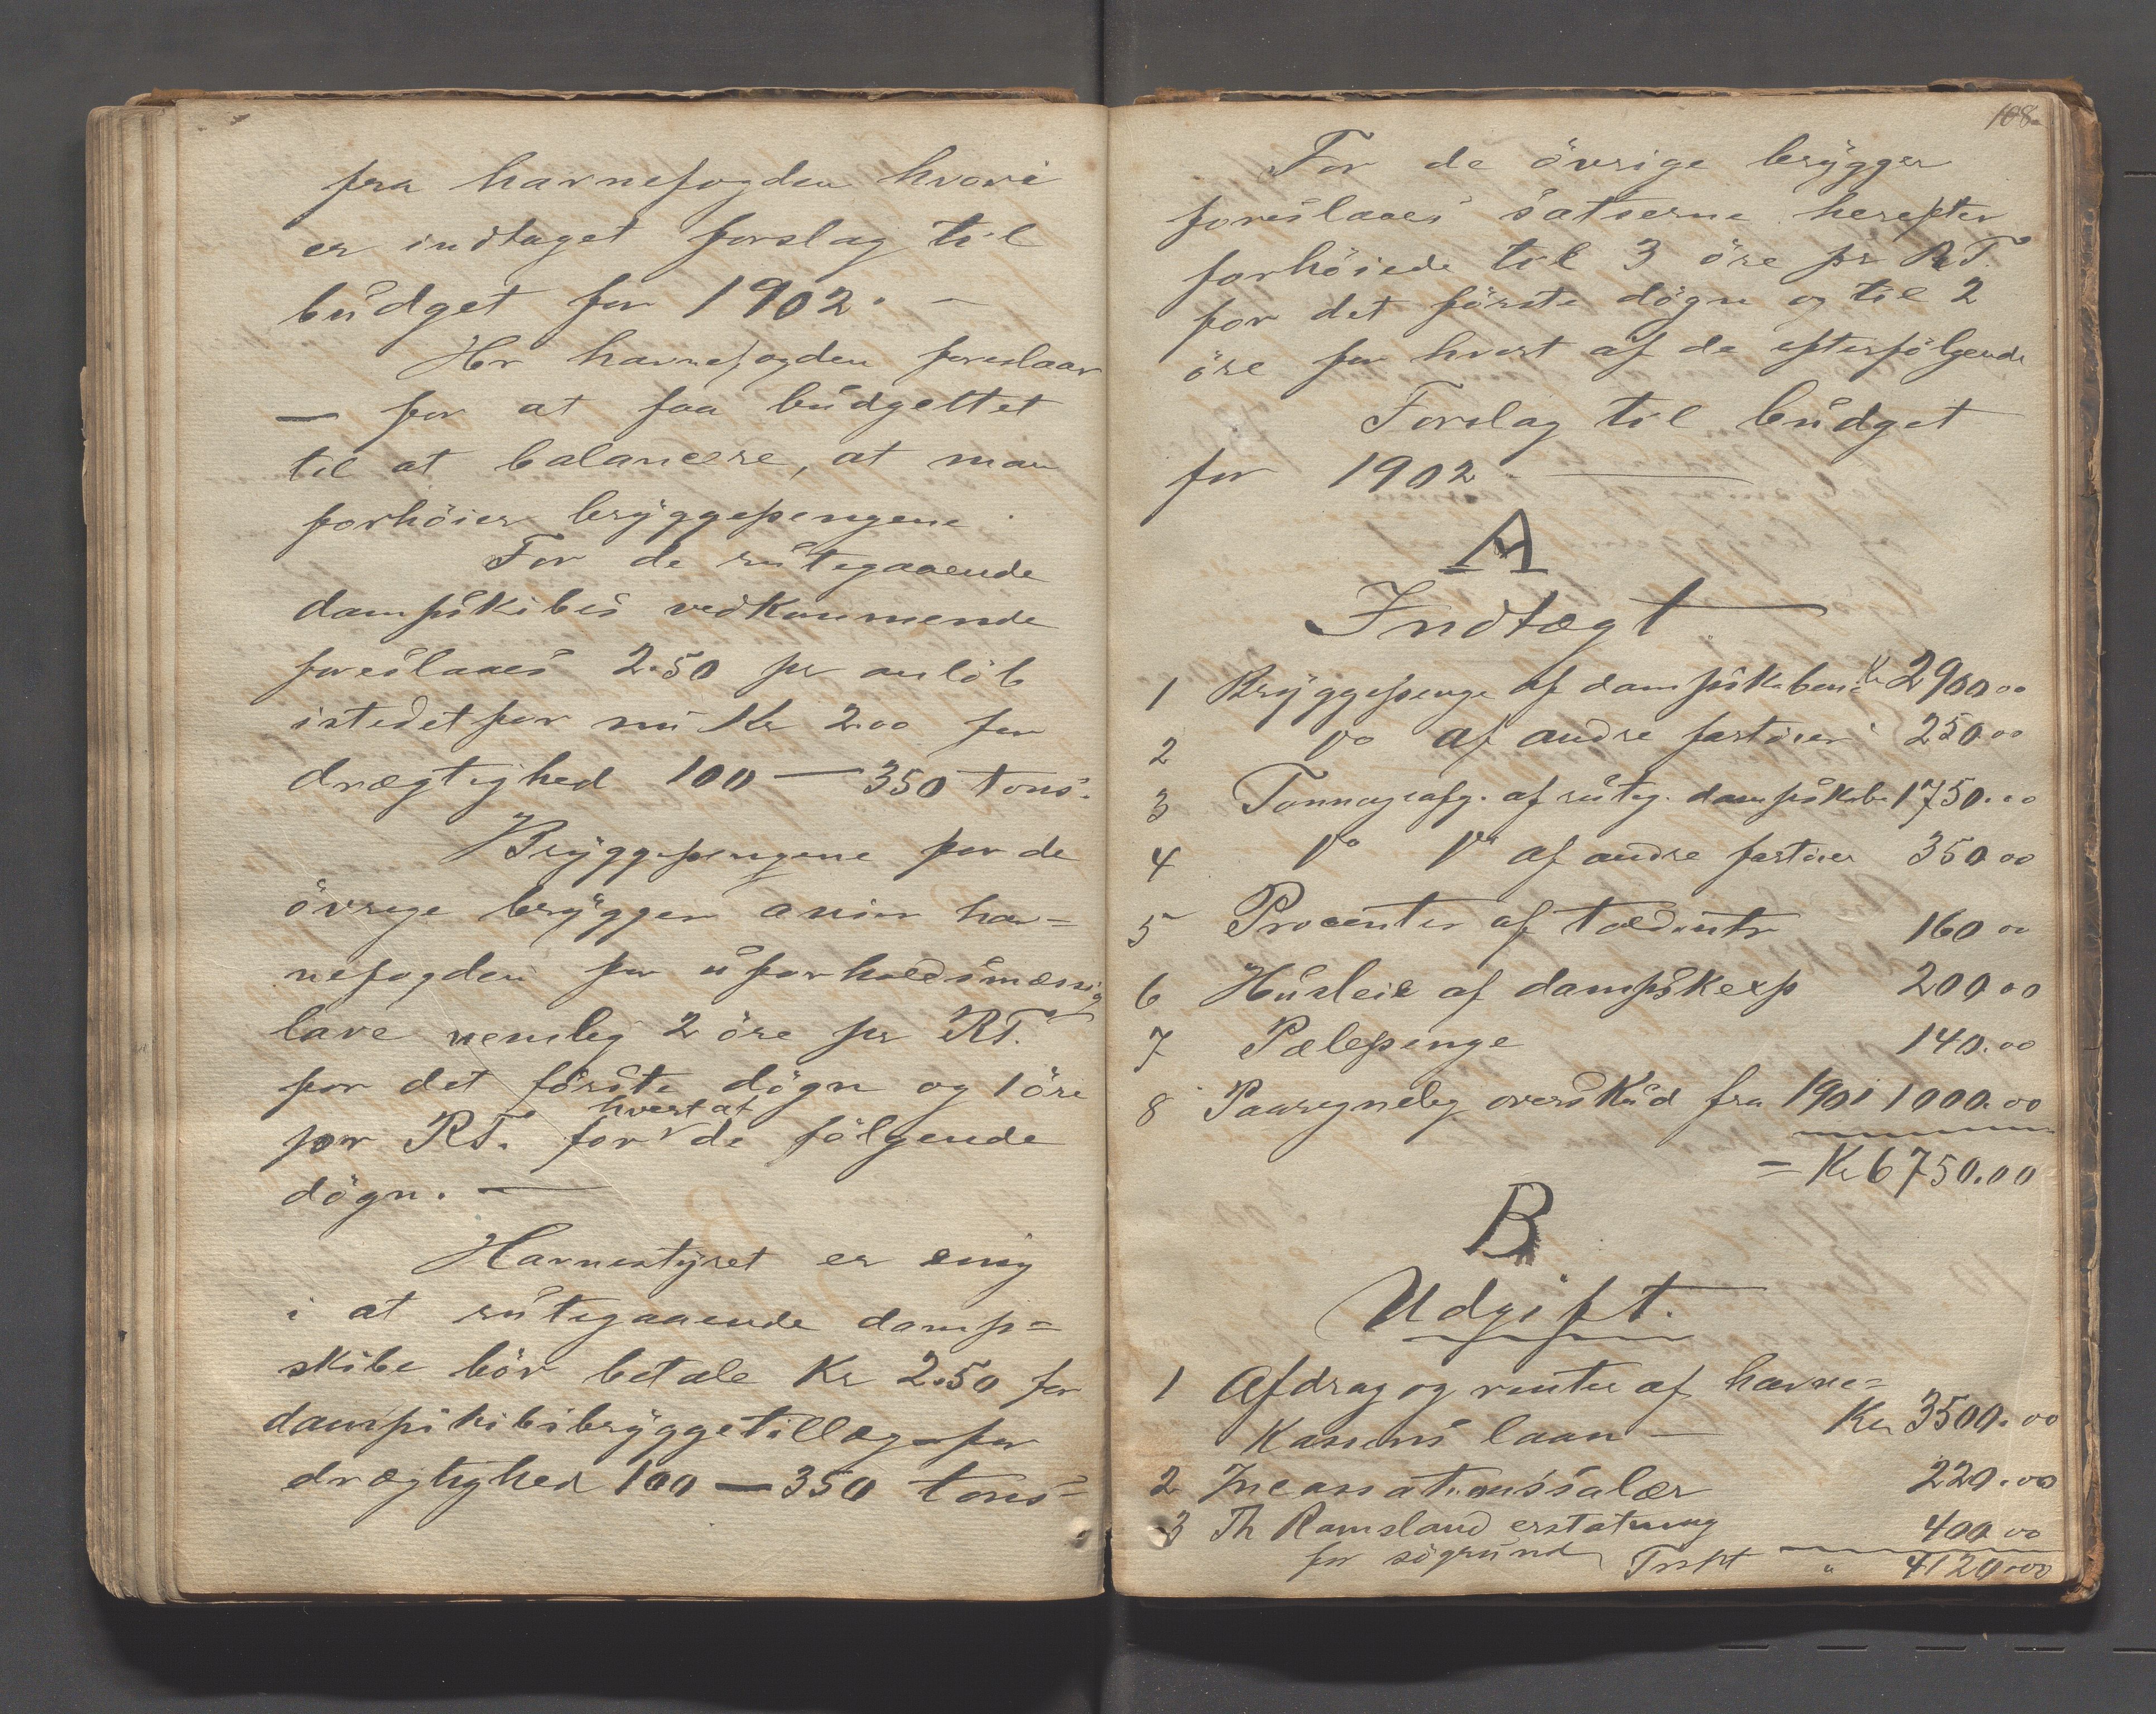 fra havnefogden hvori
er indtaget forslag til
budget for 1902. —
Hr havnefogden foreslaar
— for at faa budgettet
til at balancere, at man
forhöier bryggepengene.
For de rutegaaende
dampskibes vedkommende
foreslaaes 2.50 pr anlöb
istedetfor nu Kr 2.00 for
drægtighed 100 — 350 tons.
Bryggepengene for de
övrige brygger anser hav=
nefogden for uforholdsmæssig
lave nemlig 2 öre pr RT.
for det förste dögn og 1 öre
pr RT. for hvert af de fölgende
dögn. —
Havnestyret er enig
i at rutegaaende damp=
skibe bör betale Kr 2.50 for
dampskibsbryggetillæg for
drægtighed 100 — 350 tons=
108
For de övrige brygger
foreslaaes satserne herefter
forhöiede til 3 öre pr RT.
for det förste dögn og til 2
öre for hvert af de efterfölgende
Forslag til budget
for 1902. —
A
Indtægt
1 Bryggepenge af dampskibene Kr 2900.00
2 Do af andre fartöier 250.00
3 Tonnageafg. af ruteg. dampskibe 1750.00
4 Do Do af andre fartöier 350.00
5 Procenter af toldintr 160.00
6 Husleie af dampskexp 200.00
7 Pælepenge 140.00
8 Paaregnelig overskud fra 1901 1000.00
= Kr 6750.00
B
Udgift.
1 Afdrag og renter af havne=
kassens laan — Kr 3500.00
2 Incassationssalær 220.00
3 Th Ramsland erstatning 400.00
for sögrund Trspt " 4120.00